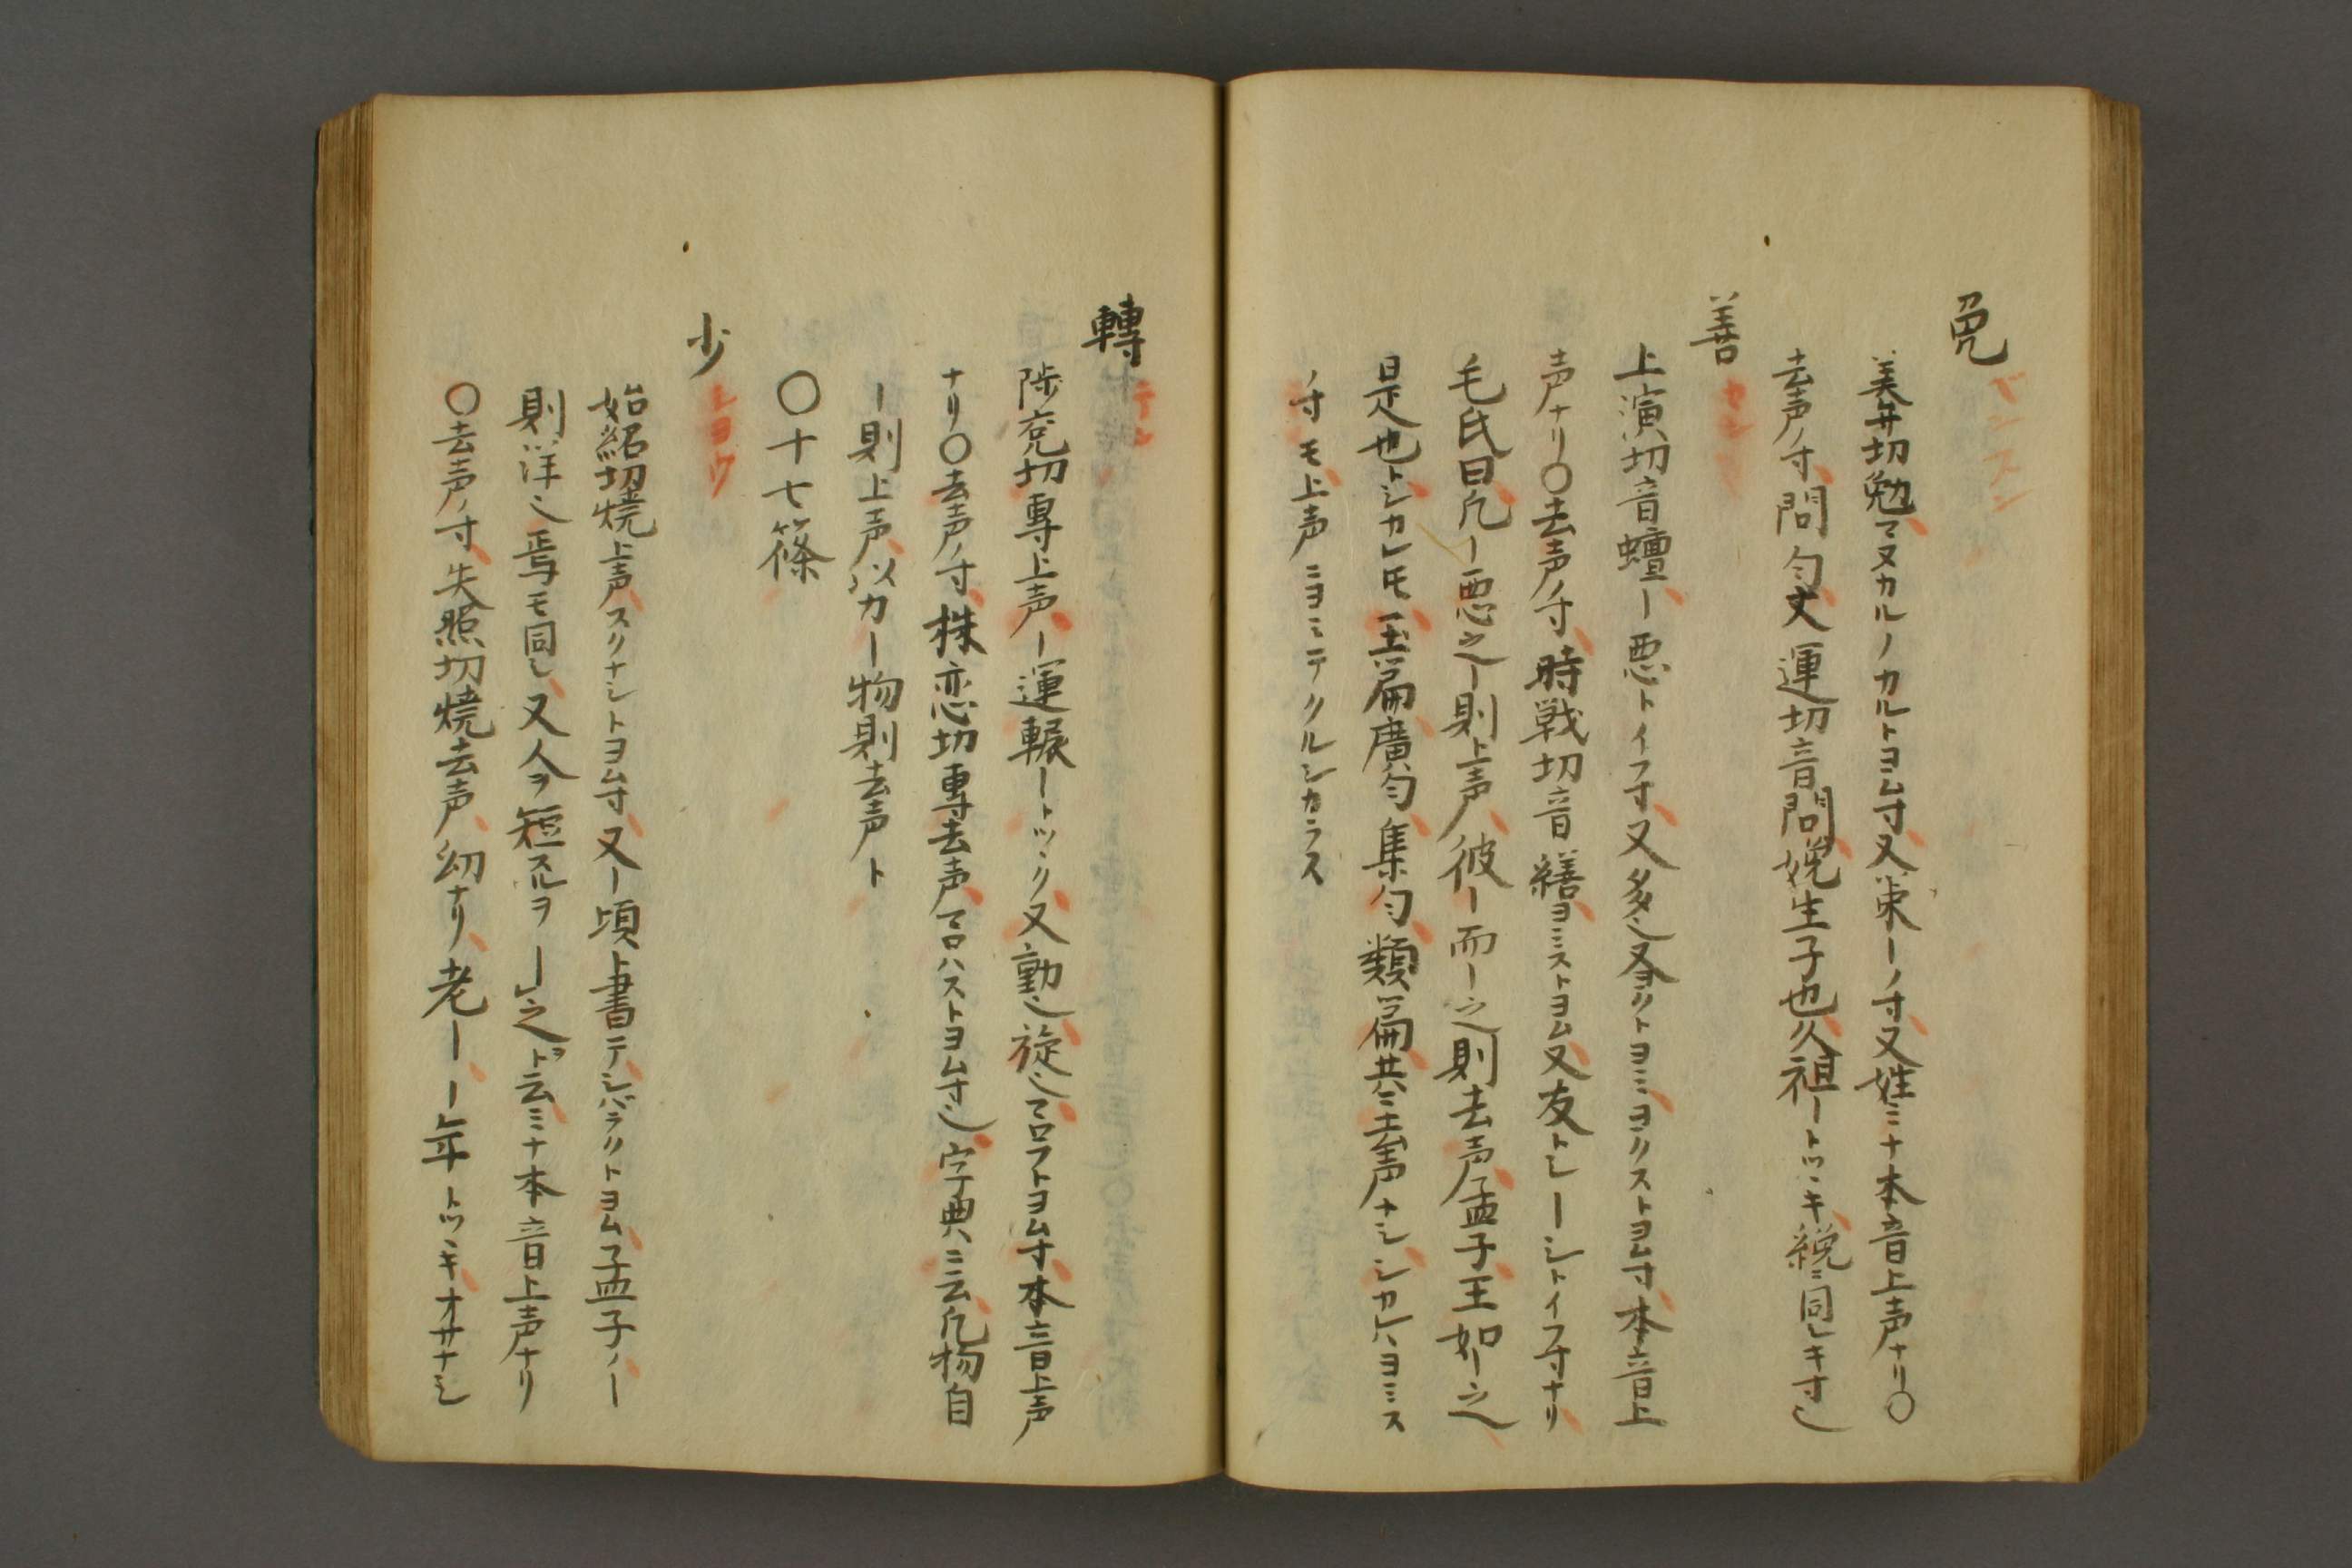 免 ベン ブン
美弁切勉マヌカルノカルトヨム寸又策ーノ寸又姓ミナ本音上声ナリ〇
去声ノ寸問匀丈運切音問娩生子也久祖ートツヽキ絻ニ同シキ寸也
善 セン
上演切音蟺ー悪トイフ寸又多也又ヨクトヨミヨクストヨム寸本音上
声ナリ〇去声ノ寸時戦切音繕ヨミストヨム又友トシーシトイフ寸ナリ
毛氏曰凡ー悪之ー則上声彼ー而ー之則去声孟子王如ー之
是也トシカレモ玉篇廣匀集匀類篇共ニ去声ナシシカレハヨミス
ノ寸モ上声ニヨミテクルシカラス
轉 テン
陟兖切専上声ー運輾ートツヽク又動也旋也マロフトヨム寸本音上声
ナリ〇去声ノ寸株恋切専去声マロハストヨム寸也字典ニ云凡物自
ー則上声以カー物則去声ト
〇十七篠
少 シヨウ
始紹切焼上声スクナシトヨム寸又ー頃ト書テシバラクトヨム孟子ノー
則洋也焉モ同シ又人ヲ短スルヲー之ト云ミナ本音上声ナリ
〇去声ノ寸失照切焼去声幼ナリ老ーー年トツヽキオサナシ